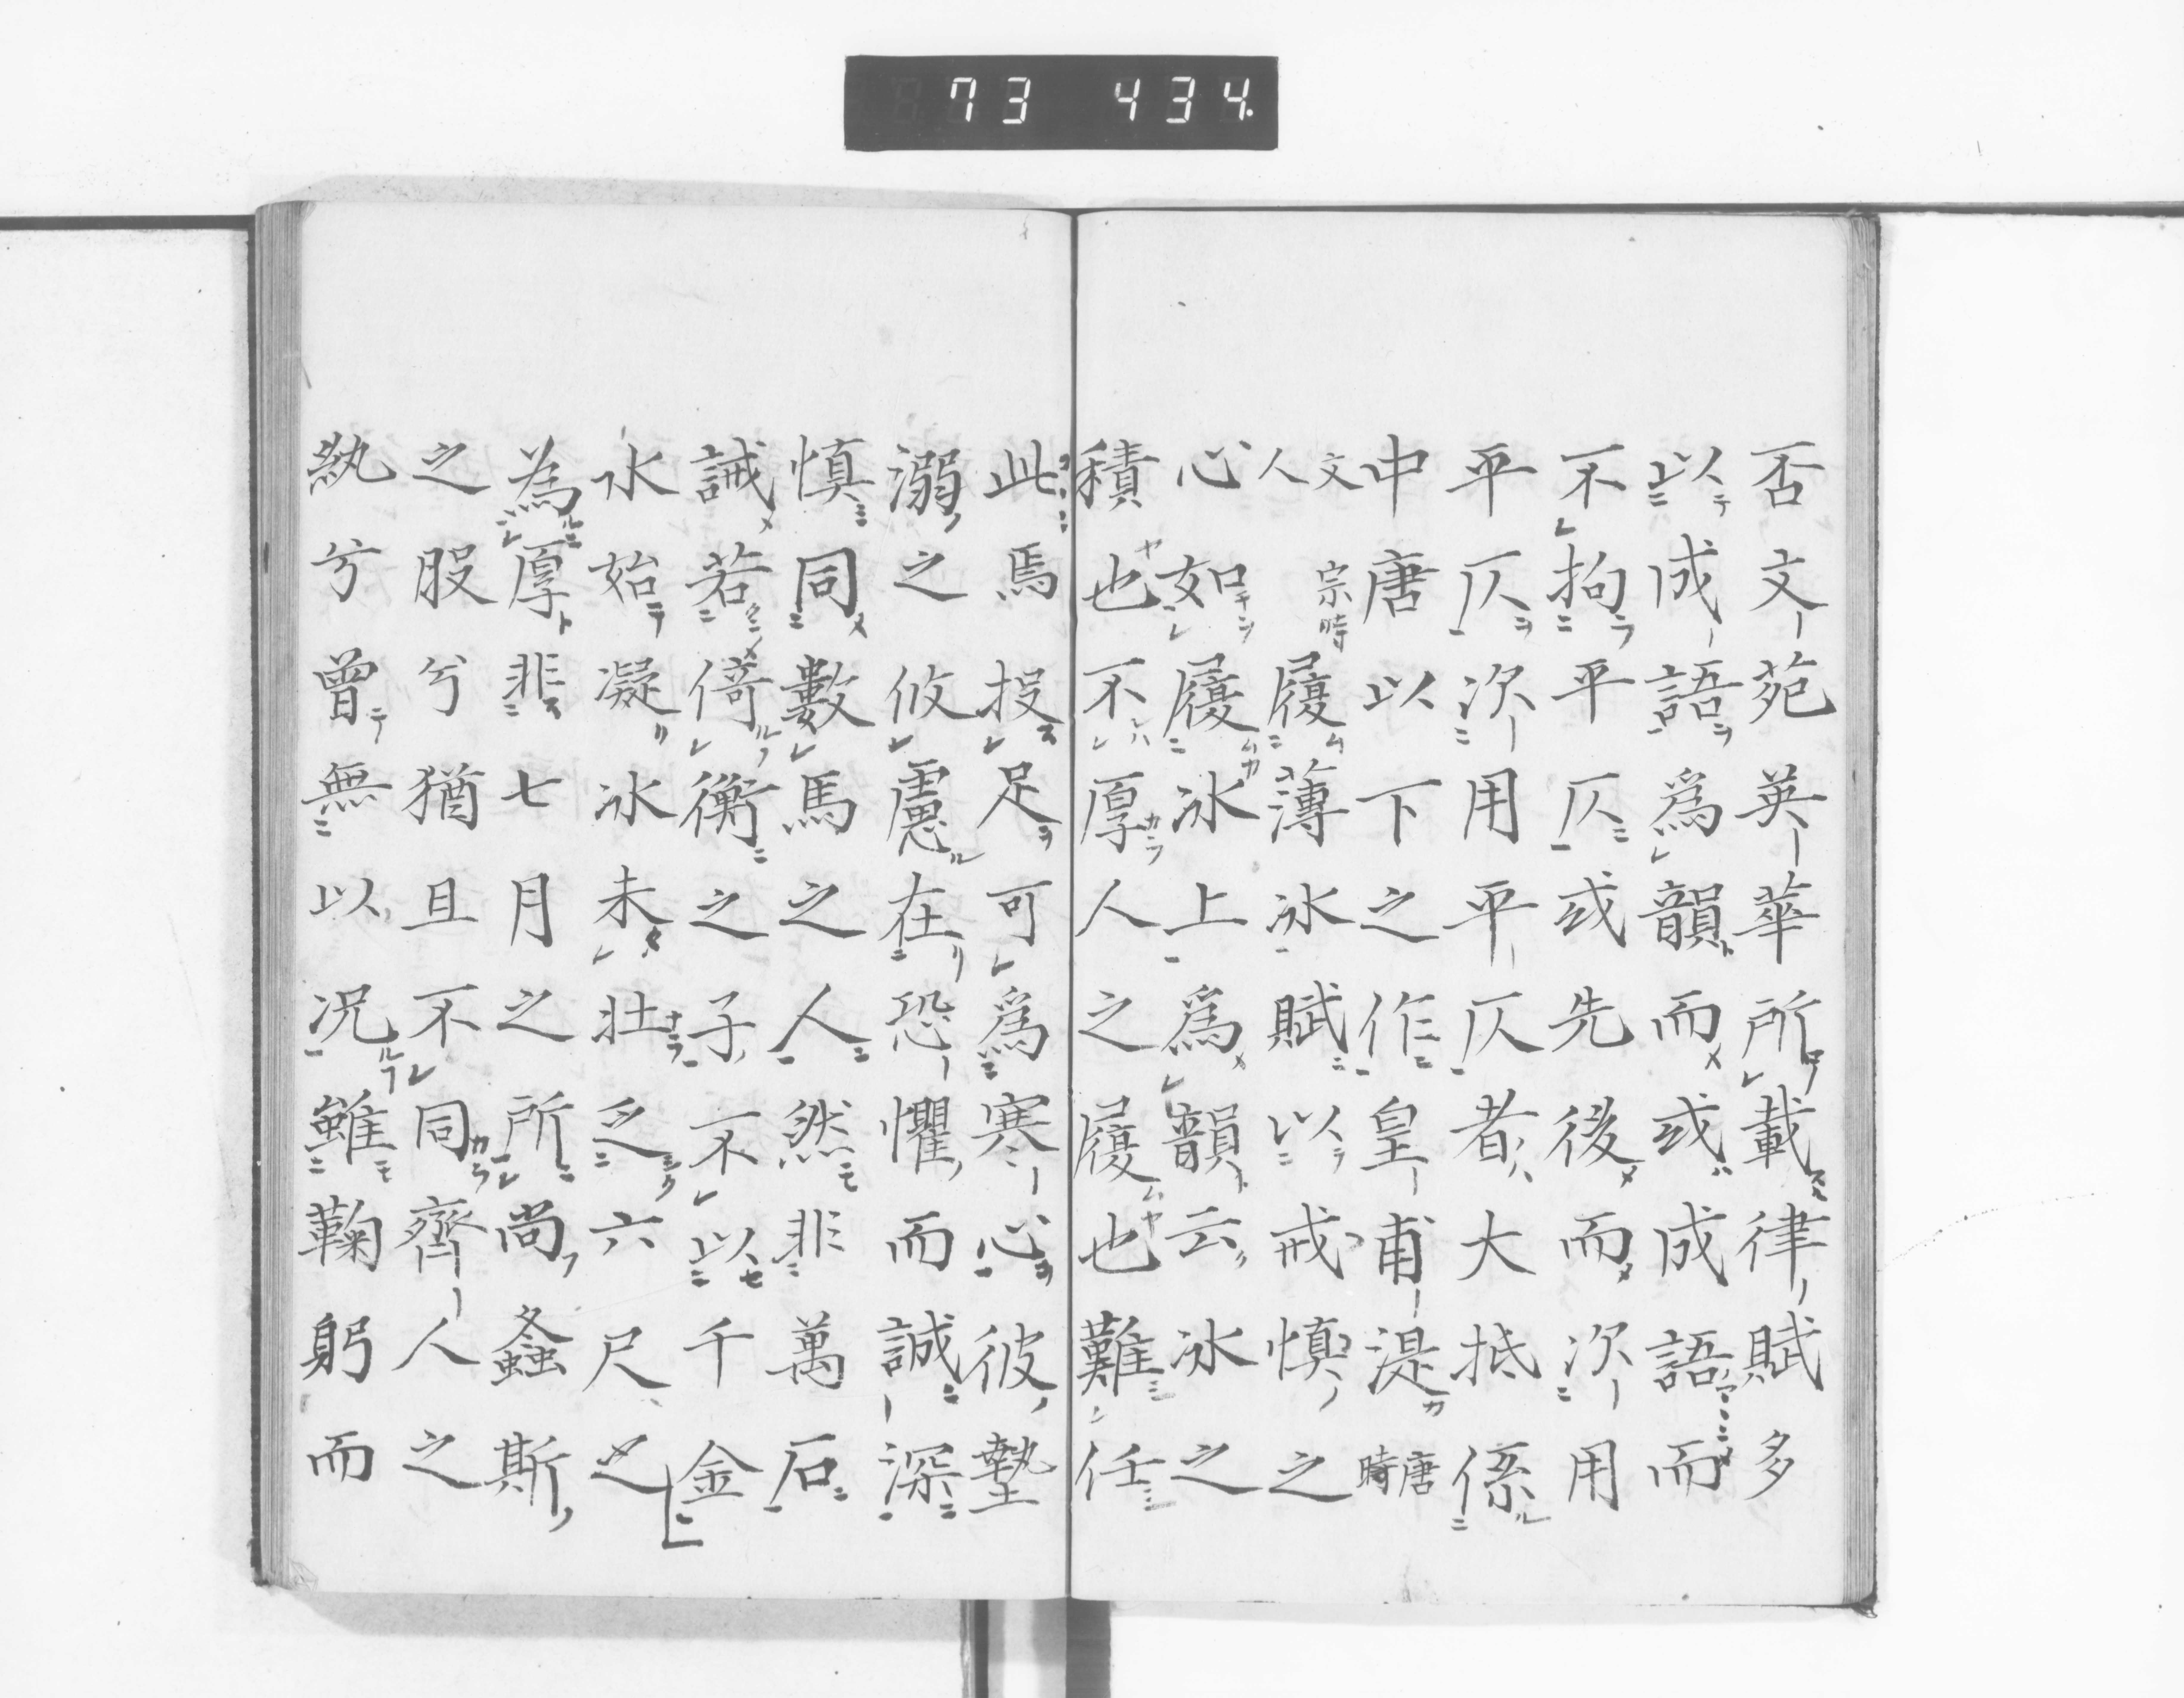 73 434.
否文苑英華所載律賦多
以成語爲韻而或成語而
不拘平仄或先後而次用
平仄次用平仄者大抵係
中唐以下之作皇甫湜唐時
文宗時人履薄冰賦以戒慎之
心如履冰上爲韻云冰之
積也不厚人之履也難任
此焉投足可爲寒心彼墊
溺之攸慮在恐懼而誠深
慎同數馬之人然非萬石
誡若倚衡之子不以千金
水始凝冰未壮乏六尺之
為厚非七月之所尚螽斯
之股兮猶且不同齊人之
紈兮曾無以况雖鞠躬而